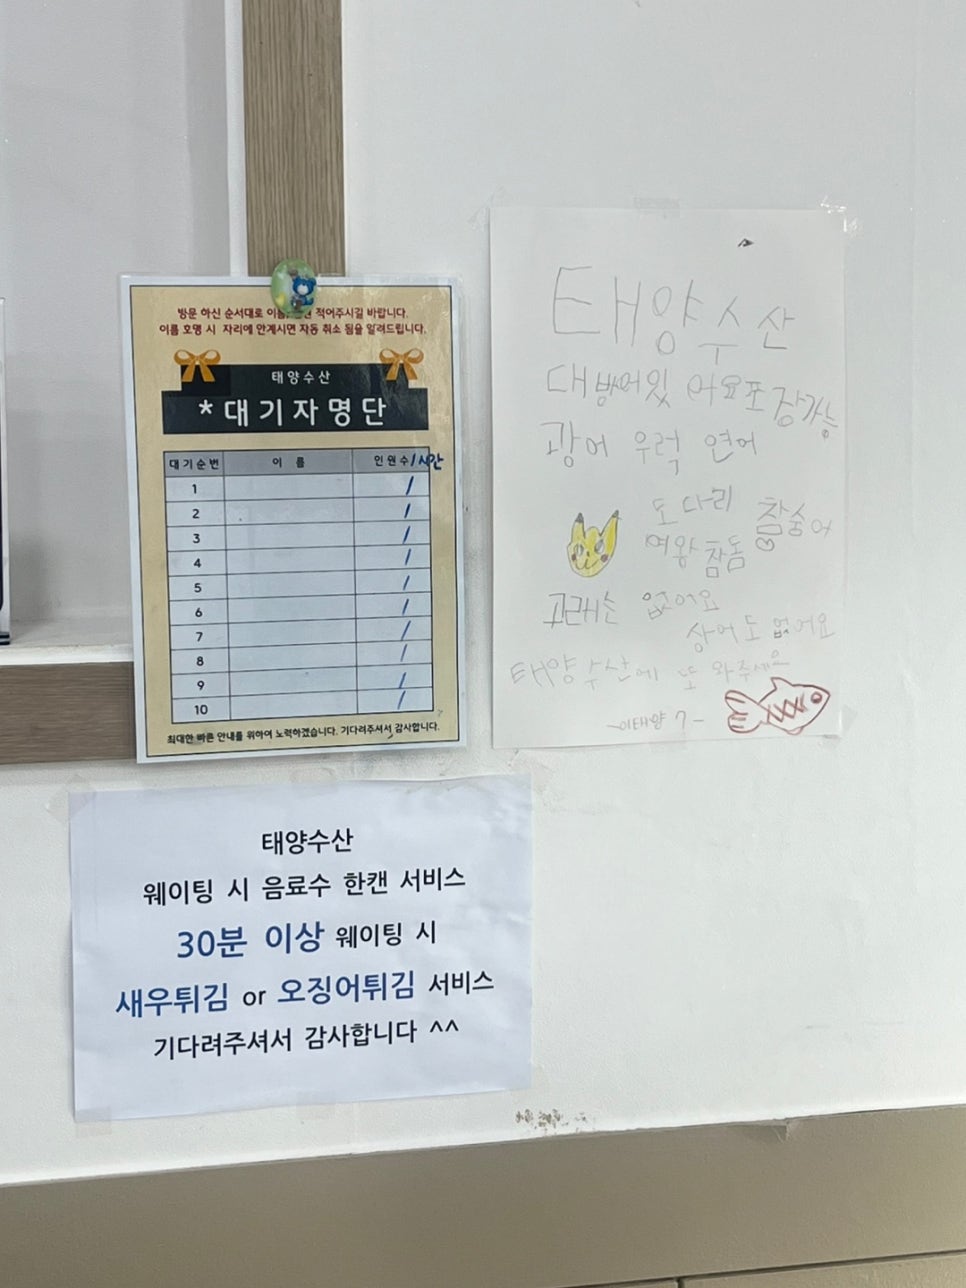 방문 하신 순서대로 이름 적어주시길 바랍니다.
이름 호명 시 자리에 안계시면 자동 취소 됨을 알려드립니다.
태양수산
*대기자명단
대기순번 이 름 인원수/시간
1 /
2 /
3 /
4 /
5 /
6 /
7 /
8 /
9 /
10 /
최대한 빠른 안내를 위하여 노력하겠습니다. 기다려주셔서 감사합니다.
태양수산
대방어있어요포장가능
광어 우럭 연어
도다리 참숭어
여왕참돔
고래는 없어요
상어도 없어요
태양수산에 또 와주세요
-이태양 7-
태양수산
웨이팅 시 음료수 한캔 서비스
30분 이상 웨이팅 시
새우튀김 or 오징어튀김 서비스
기다려주셔서 감사합니다 ^^